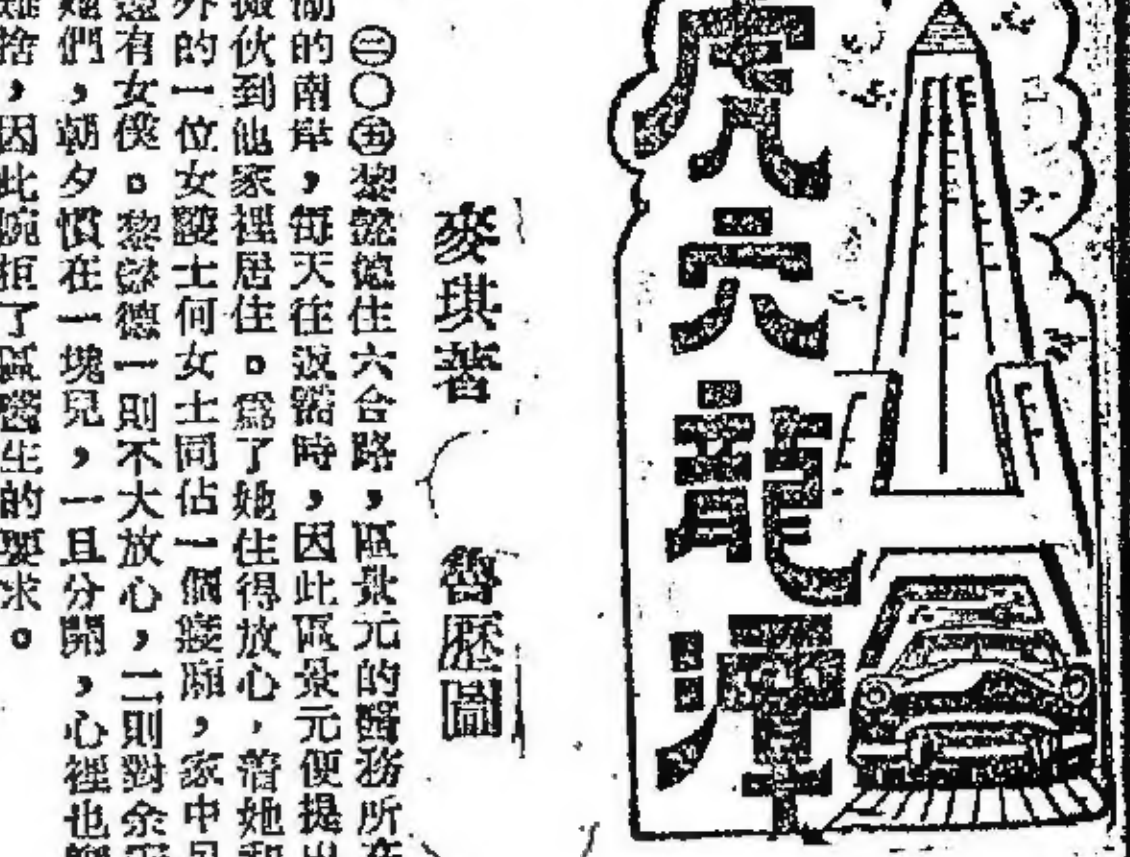 虎穴龍潭
麥琪著
魯歷圖
㊂〇㊄黎懿德住六合路,區景元的醫務所在
的南岸,每天往返需時,因此區景元便提出
搬伙到他家裡居住。爲了她住得放心,着她和
外的一位女護士何女士同佔一個寢廂,家中另
還有女僕。黎懿德一則不大放心,二則對余
她們,朝夕慣在一塊兒,一旦分開,心裡也
難捨,因此婉拒了區醫生的要求。